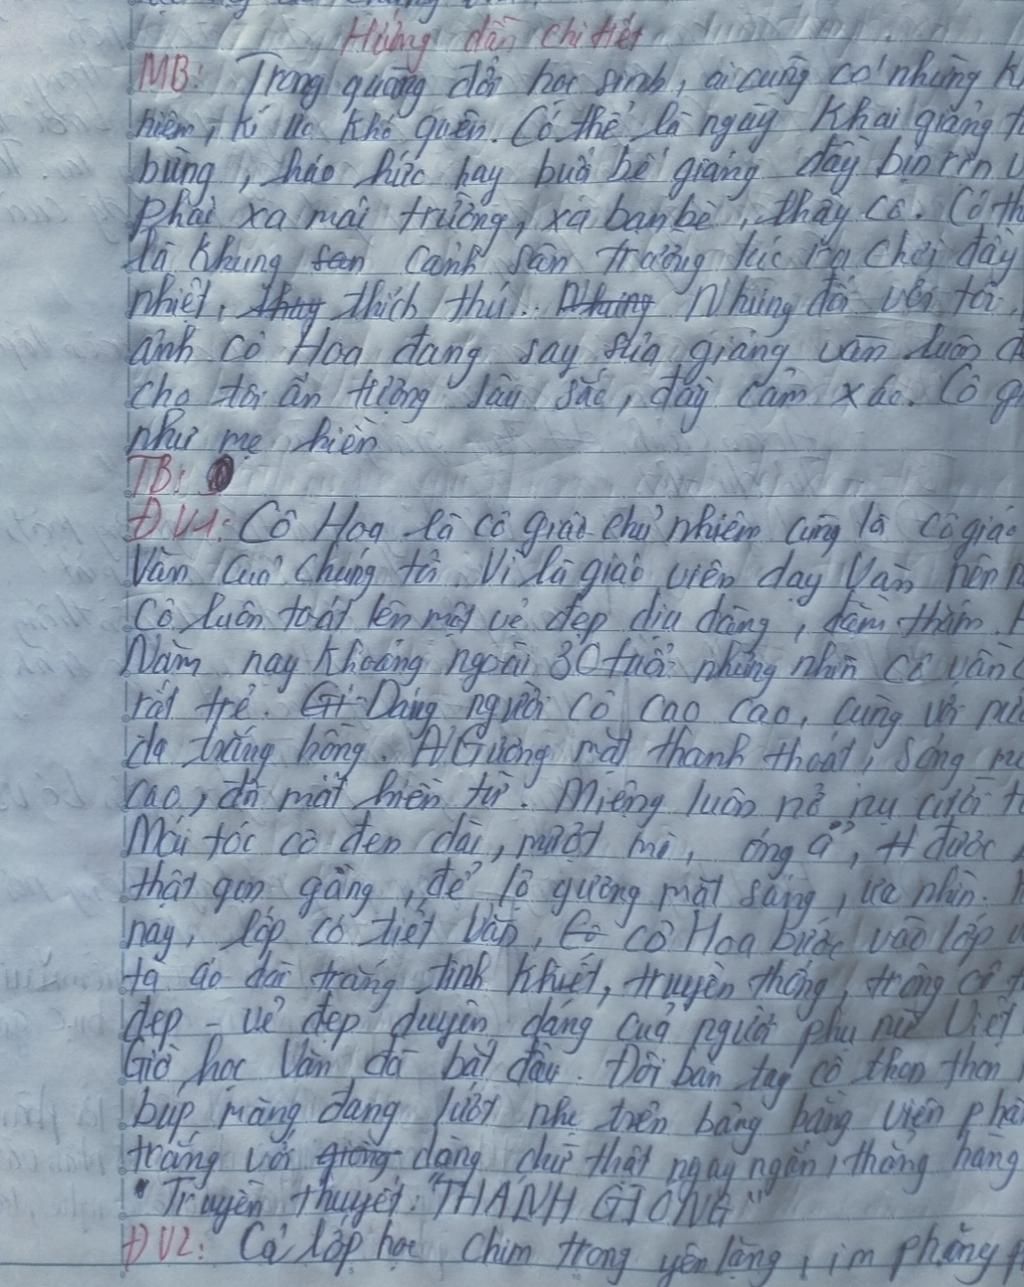 Hướng dẫn chi tiết
MB: Trong quãng đời học sinh, ai cũng có những k
niệm, kí ức khó quên. Có thể là ngày Khai giảng t
bừng, háo hức hay buổi bế giảng đầy bịn rịn v
phải xa mái trường, xa bạn bè, thầy cô. Có th
là khung cảnh sân trường lúc ra chơi đầy
nhiệt, thích thú... Nhưng đối với tôi,
ảnh cô Hoa đang say sưa giảng văn luôn đ
cho tôi ấn tượng sâu sắc, đầy cảm xúc. Cô g
như mẹ hiền
TB:
ĐV1: Cô Hoa là cô giáo chủ nhiệm cũng là cô giáo
Văn của chúng tôi. Vì là giáo viên dạy Văn nên n
Cô luôn toát lên một vẻ đẹp dịu dàng, đằm thắm.
Năm nay khoảng ngoài 30 tuổi nhưng nhìn cô vẫn c
rất trẻ. Dáng người cô cao cao, cùng với nư
da trắng hồng. Gương mặt thanh thoát, sống mũ
cao, đôi mắt hiền từ. Miệng luôn nở nụ cười t
Mái tóc cô đen dài, mượt mà, óng ả, được
thật gọn gàng, để lộ gương mặt sáng, ưa nhìn.
nay, lớp có tiết Văn, cô Hoa bước vào lớp v
tà áo dài trắng tinh khiết, truyền thống, trông cô t
đẹp - vẻ đẹp duyên dáng của người phụ nữ Việt
Giờ học Văn đã bắt đầu. Đôi bàn tay cô thon thon
búp măng đang lướt nhẹ trên bảng bằng viên phấ
trắng với dòng chữ thật ngay ngắn, thẳng hàng
"Truyền thuyết: "THÁNH GIÓNG"
ĐV2: Cả lớp học chìm trong yên lặng, im phăng p